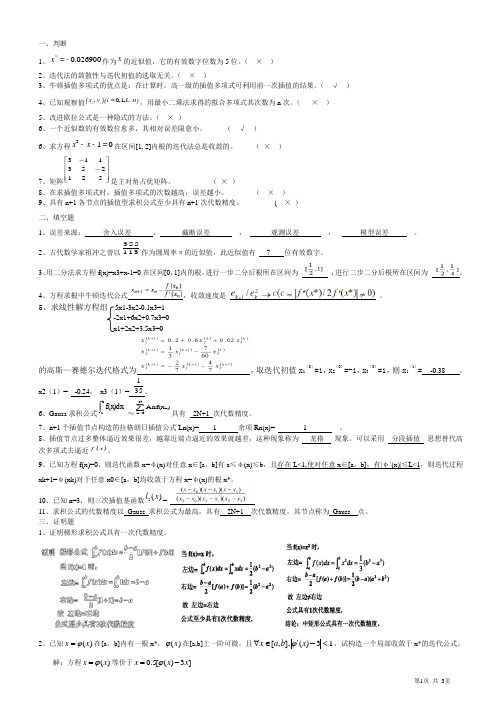 一、判断
1、x* = -0.026900作为x的近似值，它的有效数字位数为5位。（ × ）
2、迭代法的敛散性与迭代初值的选取无关。（ × ）
3、牛顿插值多项式的优点是：在计算时，高一级的插值多项式可利用前一次插值的结果。（ √ ）
4、已知观察值(x_i, y_i)(i=0,1,L n)，用最小二乘法求得的拟合多项式其次数为n次。（ × ）
5、改进欧拉公式是一种隐式的方法。（ × ）
6、一个近似数的有效数位愈多，其相对误差限愈小。 （ √ ）
6、求方程x³ - x - 1 = 0在区间[1, 2]内根的迭代法总是收敛的。 （ × ）
7、矩阵[3 -1 1; 3 5 -2; 1 2 5]是主对角占优矩阵。 （ × ）
8、在求插值多项式时，插值多项式的次数越高，误差越小。 （ × ）
9、具有n+1各节点的插值型求积公式至少具有n+1次代数精度。 ( × ）
二、填空题
1、误差来源： 舍入误差 ， 截断误差 ， 观测误差 ， 模型误差 。
2、古代数学家祖冲之曾以355/113作为圆周率π的近似值，此近似值有 7 位有效数字。
3、用二分法求方程f(x)=x3+x-1=0在区间[0, 1]内的根，进行一步二分后根所在区间为 [1/2,1] ，进行二步二分后根所在区间为 [1/2,3/4] 。
4、方程求根中牛顿迭代公式 x_{n+1} = x_n - f(x_n)/f'(x_n) ，收敛速度是 e_{k+1}/e_k² → c(c=|f''(x*)/2f'(x*)|≠0) 。
5、求线性解方程组 5x1-3x2-0.1x3=1
-2x1+6x2+0.7x3=0
x1+2x2+3.5x3=0
x₁^(k+1) = 0.2 + 0.6x₂^(k) + 0.02x₃^(k)
x₂^(k+1) = 1/3 x₁^(k+1) - 7/60 x₃^(k)
x₃^(k+1) = -2/7 x₁^(k+1) - 4/7 x₂^(k+1)
的高斯—赛德尔迭代格式为 ，取迭代初值x₁⁽⁰⁾=1，x₂⁽⁰⁾=-1，x₃⁽⁰⁾=1，则x₁⁽¹⁾= -0.38 ，
x2（1）= -0.24， x3（1）= 1/35 。
6、Gauss求积公式∫f(x)dx ≈ ∑Anf(xₙ) 具有 2N+1 次代数精度。
7、n+1个插值节点构造的拉格朗日插值公式Ln(x)= 1 余项Rn(x)= 1 。
8、插值节点过多整体逼近效果很差，越靠近端点逼近的效果就越差，这种现象称为 龙格 现象。可以采用 分段插值 思想替代高
次多项式去逼近f(x)。
9、已知方程f(x)=0，则迭代函数x=φ(x)对任意x∈[a，b]有a≤φ(x)≤b，且存在L<1,使对任意x∈[a，b]，有|φ`(x)|≤L<1，则迭代过程
xk+1=φ(xk)对于任意x0∈[a，b]均收敛于方程x=φ(x)的根x*。
10、已知n=3，则三次插值基函数l₂(x)= (x-x₀)(x-x₁)(x-x₃)/(x₂-x₀)(x₂-x₁)(x₂-x₃)
11、求积公式的代数精度以 Gauss 求积公式为最高，具有 2N+1 次代数精度，其节点称为 Gauss 点。
三、证明题
1、证明梯形求积公式具有一次代数精度。
证明 梯形公式 ∫f(x)dx ≈ (b-a)/2[f(a)+f(b)]
当 f(x)=1 时，
左边=∫f(x)dx=b-a
右边=(b-a)/2[1+1]=b-a
故 左边=右边
公式至少具有0次代数精度
当f(x)=x 时，
左边=∫f(x)dx=∫xdx=1/2(b²-a²)
右边=(b-a)/2[f(a)+f(b)]=1/2(b²-a²)
故 左边=右边
公式至少具有1次代数精度。
当f(x)=x² 时，
左边=∫f(x)dx=∫x²dx=1/3(b³-a³)
右边=(b-a)/2[f(a)+f(b)]=1/2(b-a)(a²+b²)
故 左边≠右边
公式具有1次代数精度。
结论：中矩形公式具有一次代数精度。
2、已知x=φ(x)在[a，b]内有一根x*，φ(x)在[a,b]上一阶可微，且∀x∈[a,b],|φ'(x)-3|<1，试构造一个局部收敛于x*的迭代公式。
解：方程x=φ(x)等价于x=0.5[φ(x)-3x]
第1页 共3页